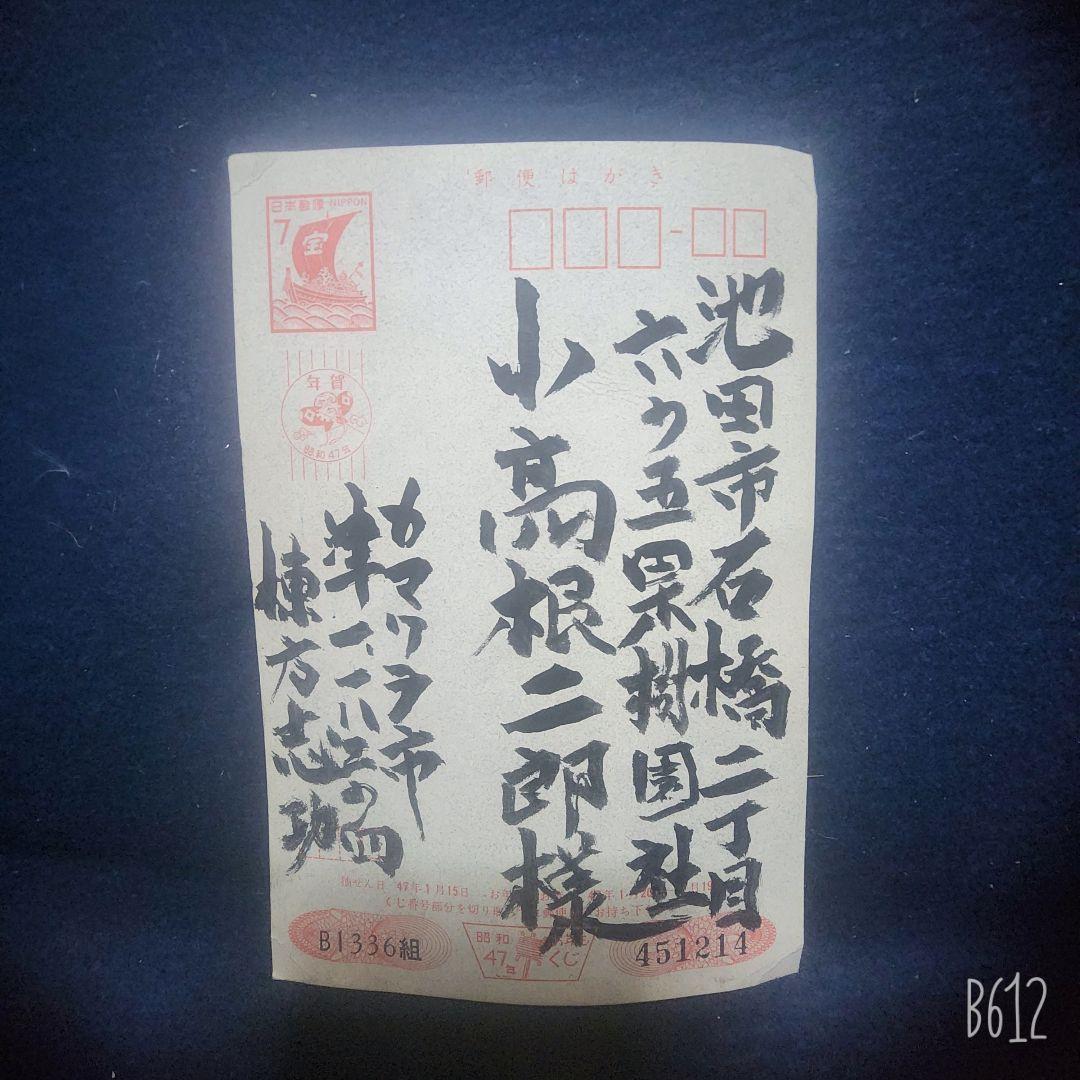 郵便はがき
日本郵便 NIPPON
7
宝
年賀
昭和47年
池田市石橋二丁目
六ノ五果樹園社
小高根二郎様
カマクラ市
津一、一八二の四
棟方志功
抽せん日 47年1月15日
く七番号部分を切り
お持ち下
B1336組
昭和
47年
くじ
451214
B612